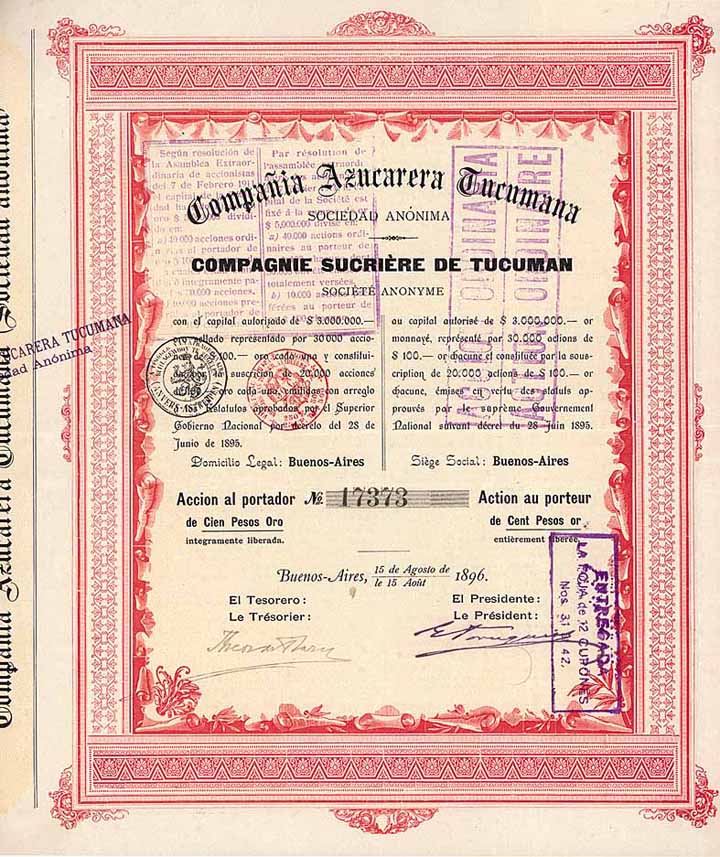 Compañia Azucarera Tucumana
SOCIEDAD ANÓNIMA
COMPAGNIE SUCRIÈRE DE TUCUMAN
SOCIÉTÉ ANONYME
con el capital autorizado de $ 3.000.000.—
sellado representado por 30000 accio-
100.— oro cada uno y constitui-
suscricion de 20.000 acciones
oro cada una, emitidas con arreglo
Estatutos aprobados por el Superior
Gobierno Nacional por decreto del 28 de
Junio de 1895.
Domicilio Legal: Buenos-Aires
au capital autorisé de $ 3.000.000.— or
monnayé, représenté par 30.000 actions de
$ 100.— or chacune et constituée par la sous-
cription de 20.000 actions de $ 100.— or
chacune, émises en vertu des statuts ap-
prouvés par le suprème Gouvernement
National suivant décret du 28 Juin 1895.
Siège Social: Buenos-Aires
Accion al portador No. 17373 Action au porteur
de Cien Pesos Oro
integramente liberada.
de Cent Pesos or
entièrement liberée.
Buenos-Aires, 15 de Agosto de
le 15 Août 1896.
El Tesorero:
Le Trésorier:
El Presidente:
Le Président:
Según resolución de
la Asamblea Extraor-
dinaria de accionistas
del 7 de Febrero
el capital
oro $
do en:
a) 40.000 acciones ordi-
al portador de
integramente pa-
acciones
acciones pre-
portador de
Par résolution de
l'assamblée
capital de la Société est
fixé à la
$ 5.000.000 divisé en:
a) 40.000 actions ordi-
naires au porteur de
totalement versées.
b) 10.000
au porteur de
ACCION ORDINARIA
ACTION ORDINAIRE
ENTREGADA
LA HOJA de 12 CUPONES
Nos. 31 42.
CARERA TUCUMANA
ad Anónima
Compañia Azucarera Tucumana Sociedad anónima